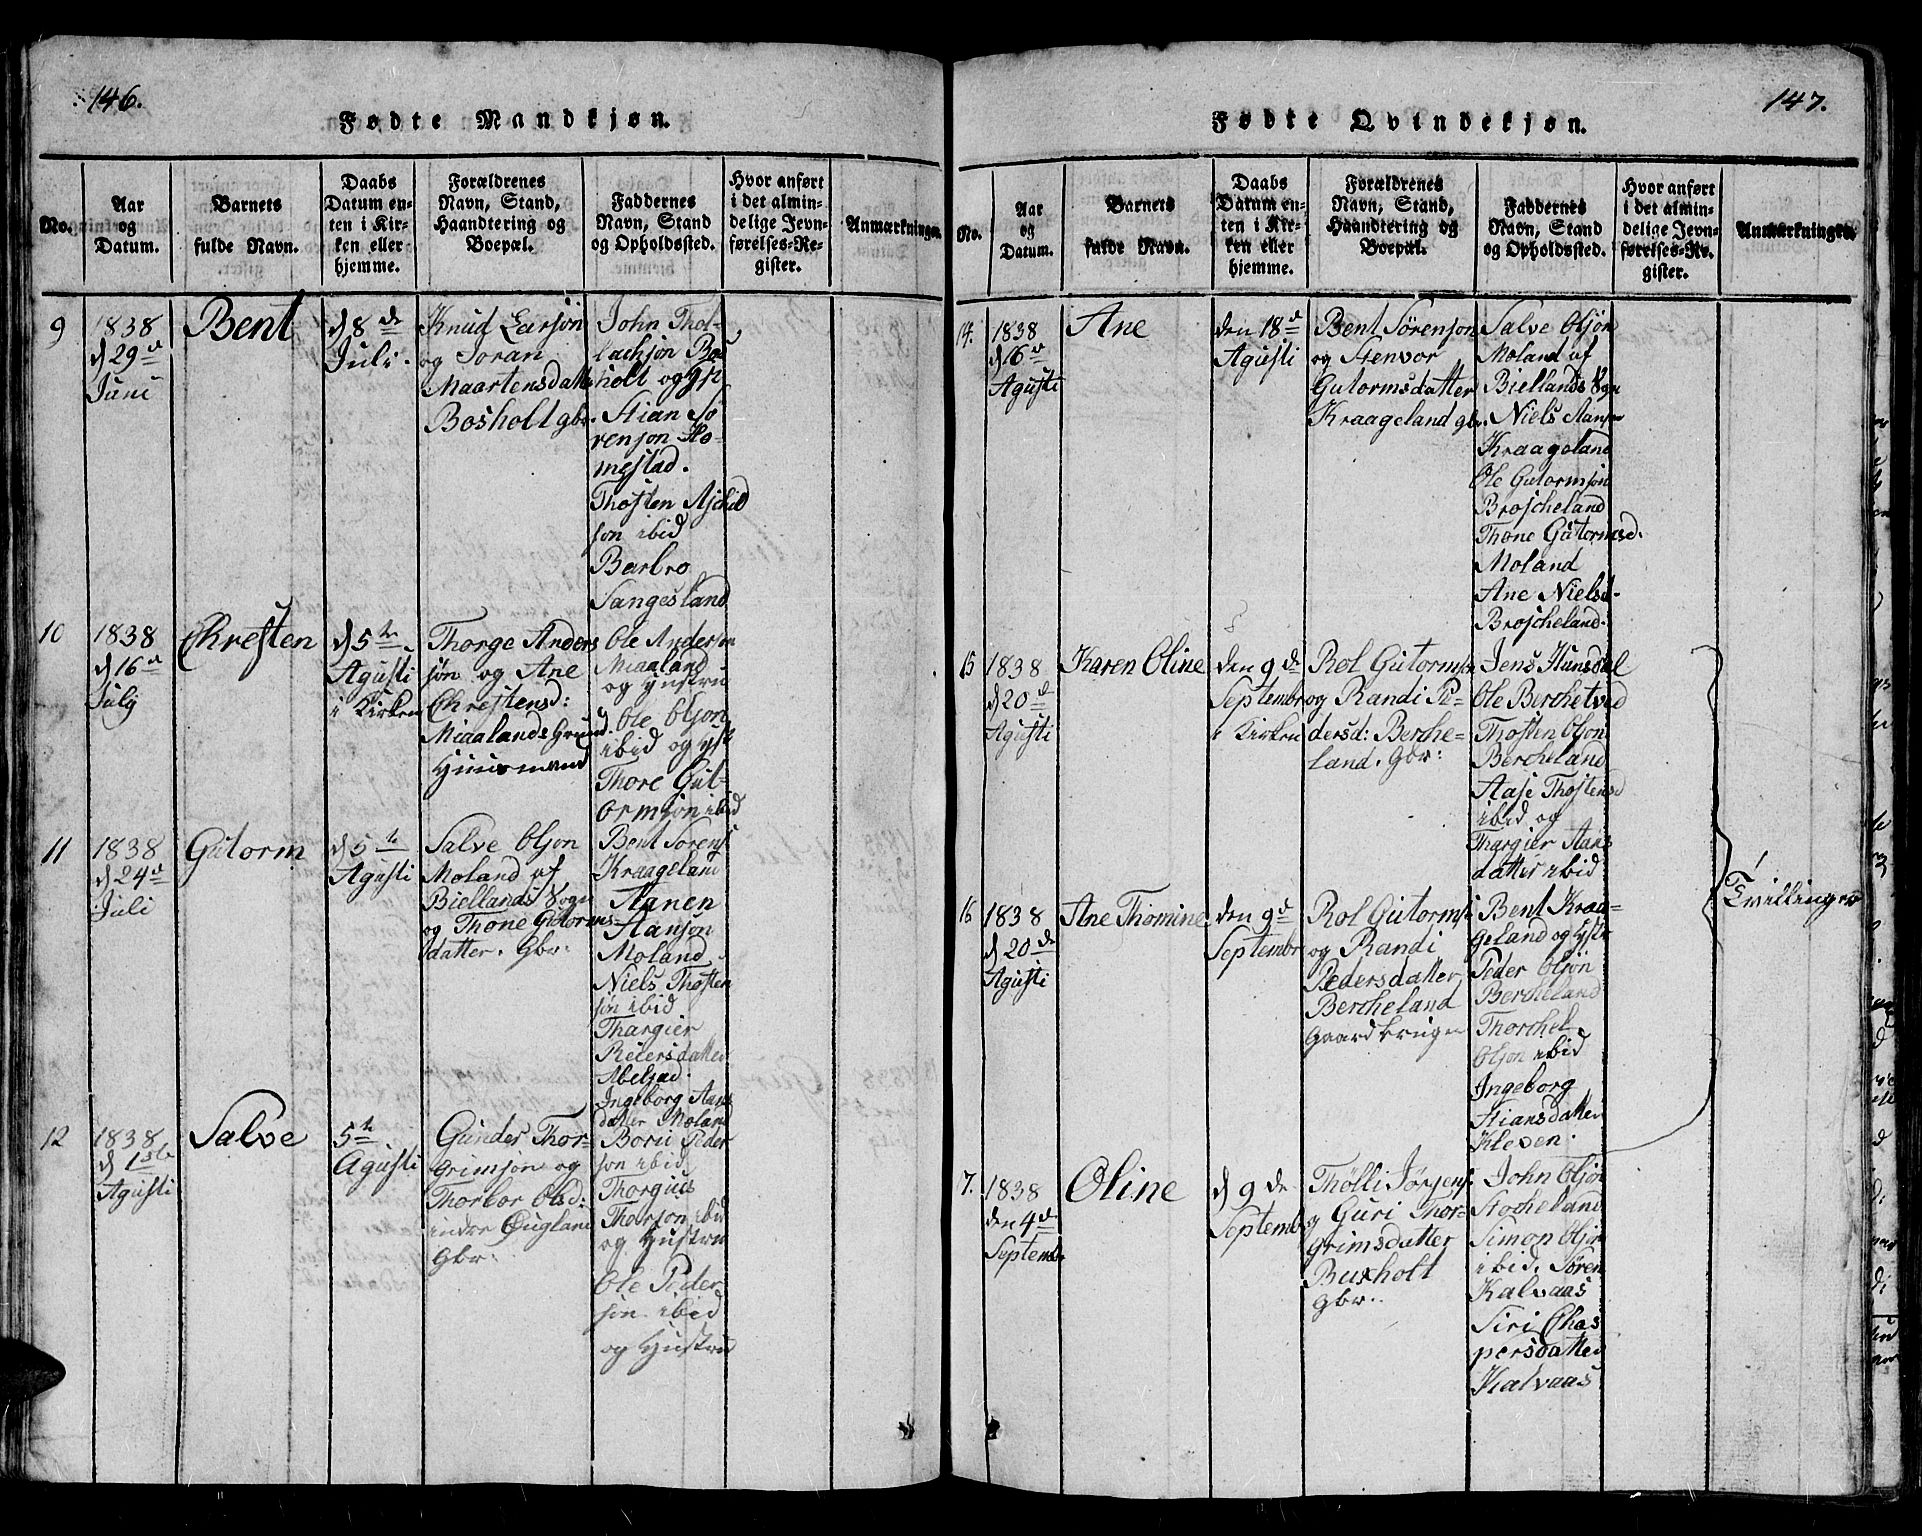 146.
Fødte Mandkjøn.
No.
Aar
og
Datum.
Barnets
fulde Navn.
Daabs
Datum en-
ten i Kir-
ken eller
hjemme.
Forældrenes
Navn, Stand,
Haandtering og
Boepæl.
Faddernes
Navn, Stand
og Opholdssted.
Hvor anført
i det almin-
delige Jevn-
førelses-Re-
gister.
Anmærkninger.
9
1838
d 29de
Juni
Bent
d 8de
Juli.
Knud Larsøn
og Joran
Maartensdatte
Bosholt gbr.
John Thol-
lachsøn Bos
holt og
Stian Sø
rensøn Ho-
mestad.
Thosten Aschild
søn ibid
Barbro
Sangesland
10
1838
d 16de
July
Chresten
d 5te
Agusti
i Kirken
Thorge Anders
søn og Ane
Chrestensd:
Miaalands Grund.
Huusmand
Ole Anderson
Miaaland
og Hustru
Ole Olson
ibid og
Thore Gut-
ormsøn ibid
11
1838
d 24de
Juli
Gutorm
d 5te
Agusti
Salve Olson
Moland af
Biellands Sogn
og Thone Gutorms-
datter. Gbr:
Bent Sørens
Kraageland
Aanen
Hanson
Moland
Niels Thosten
søn ibid
Thargier
Reiersdatter
Abelsad.
Ingeborg Aans
datter Moland
12
1838
d 1ste
Agusti
Salve
5te
Agusti
Gunder Thor-
grimsøn og
Thorbor Olsd:
indre Øugland
Gbr:
Boru Peder
søn ibid
Thorguus
Thorson ibid
og Hustru
Ole Peder
søn ibid
og Hustru
147.
Fødte Qvindekjøn.
No.
Aar
og
Datum.
Barnets
fulde Navn.
Daabs
Datum en-
ten i Kir-
ken eller
hjemme.
Forældrenes
Navn, Stand,
Haandtering og
Boepæl.
Faddernes
Navn, Stand
og Opholdssted.
Hvor anført
i det almin-
delige Jevn-
førelses-Re-
gister.
Anmærkninger.
14.
1838
d 16de
Agusti
Ane
den 18de
Agusti
Bent Sørenson
og Stenvor
Gutormsdatter
Kraageland gbr.
Salve Olson
Moland af
Biellands Sogn
Niels Hanson
Kraageland
Ole Gutormsøn
Broscheland
Thone Gutormsd.
Moland
Ane Nielsd.
Broscheland.
15
1838
d 20de
Agusti
Karen Oline
den 9de
Septembr
i Kirken
Rol Gutormsøn
og Randi Pe-
dersd: Berche-
land. Gbr:
Jens Hunsdal
Ole Berchetved
Thosten Olson
Bercheland
Aase Thostensd
ibid og
Thargier Aans
datter ibid
16
1838
d 20de
Agusti
Ane Thomine
den 9de
Septembr
Rol Gutorms
og Randi
Pedersdatter
Bercheland
Gaardbruger
Bent Kraa-
geland og Hustr
Peder Olsøn
Bercheland
Thorchel
Olson ibid
Ingeborg
Stiansdatter
Kleven.
Tvillinger
7.
1838
den 4de
Septembr
Oline
d 9de
Septembr
Thølli Jørgens
og Guri Thor-
grimsdatter
Buxholt
Gbr.
John Olsøn
Stocheland
Simon Olson
ibid. Søren
Kalvaas
Siri Chas
persdatter
Kalvaas